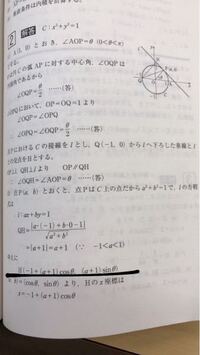 ② 解答 C : x²+y²=1
A(1, 0) とおき，∠AOP=θ (0<θ<π)
とする。
の弧 AP に対する中心角，∠OQP は
円周角であるから
∠OQP=θ/2 ……(答)
OPQ において，OP=OQ=1 より
∠OPQ=∠OQP
∠OPQ=∠OQP=θ/2 ……(答)
P における C の接線を l とし，Q(−1, 0) から l へ下ろした垂線と l
との交点を H とする。
l⊥QH より OP∥QH
∠OQH=∠AOP=θ ……(答)
P(a, b) とおくと，点 P は C 上の点だから a²+b²=1 で，l の方程
式は
l : ax+by=1
QH=|a·(−1)+b·0−1|/√(a²+b²)
=|a+1|=a+1 (∵ −1<a<1)
に
H(−1+(a+1)cosθ, (a+1)sinθ)
b)=(cosθ, sinθ) より，H の x 座標は
x=−1+(a+1)cosθ